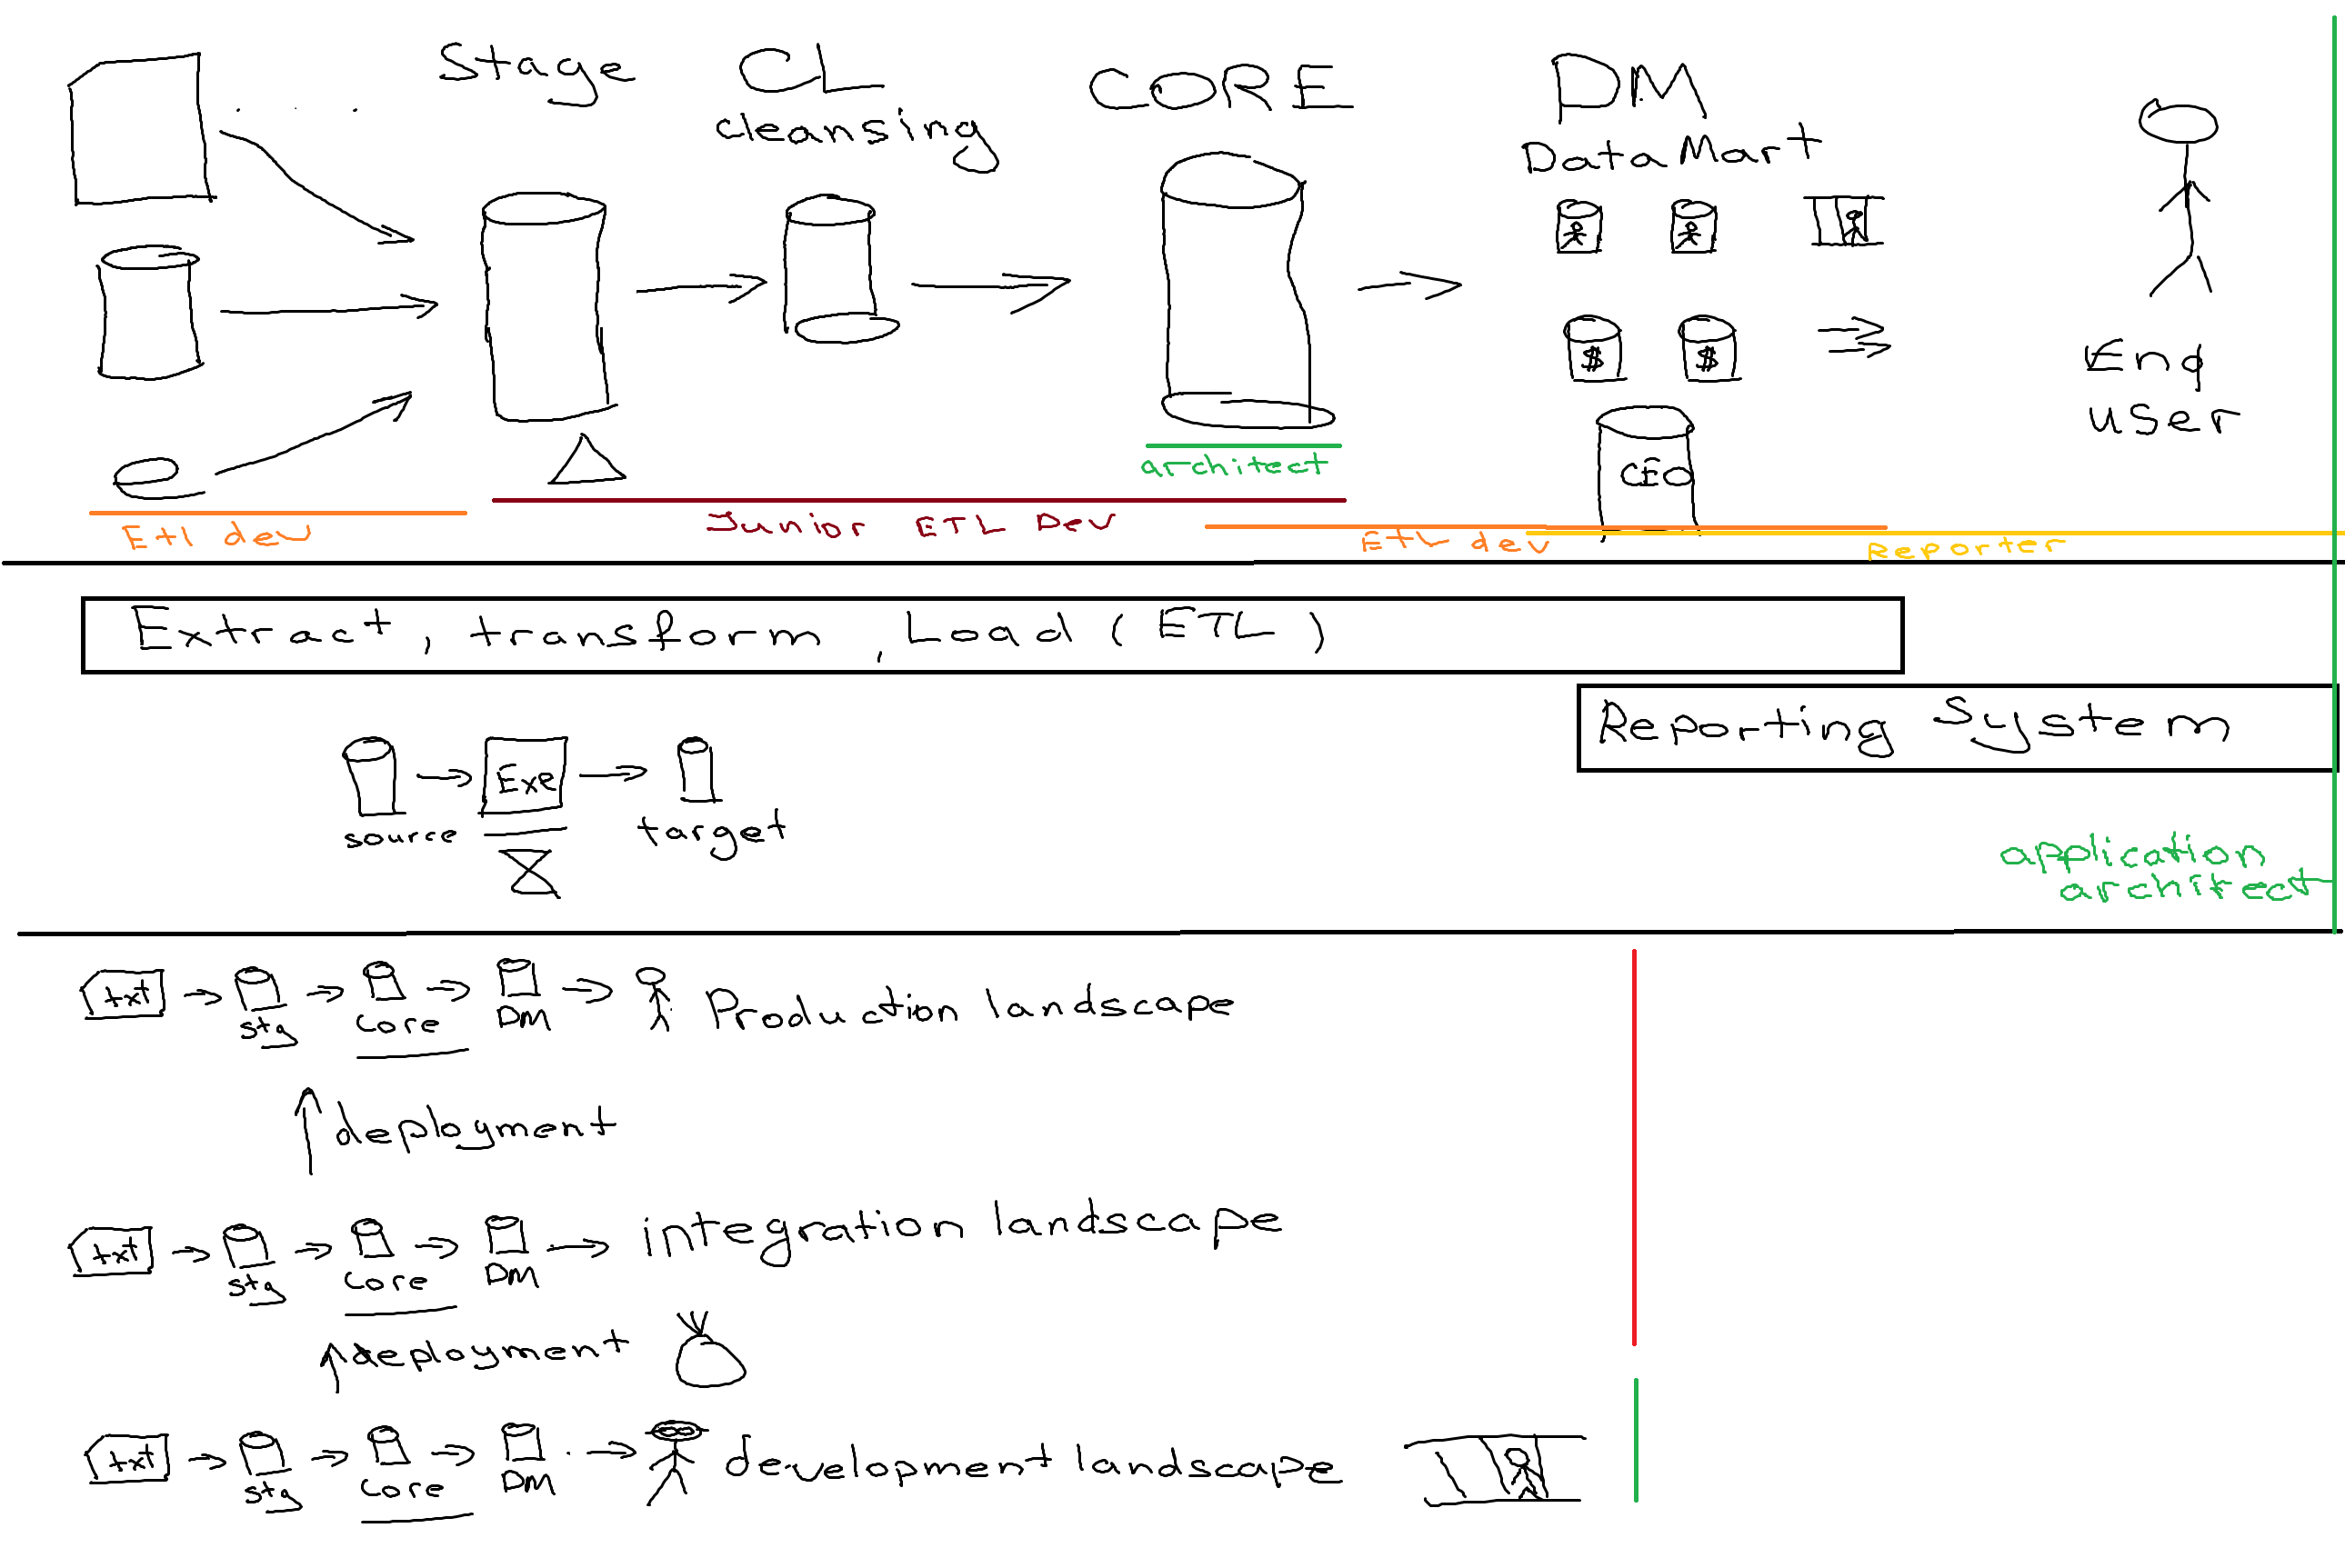 Stage
CL
cleansing
CORE
DM
Data Mart
$ $
CEO
End
user
architect
Etl dev
Junior ETL Dev
ETL dev
Reporter
Extract, transform, Load (ETL)
Reporting System
Exe
source
target
application
architect
txt
stg
core
DM
Production landscape
deployment
txt
stg
core
DM
integration landscape
deployment
txt
stg
core
DM
development landscape